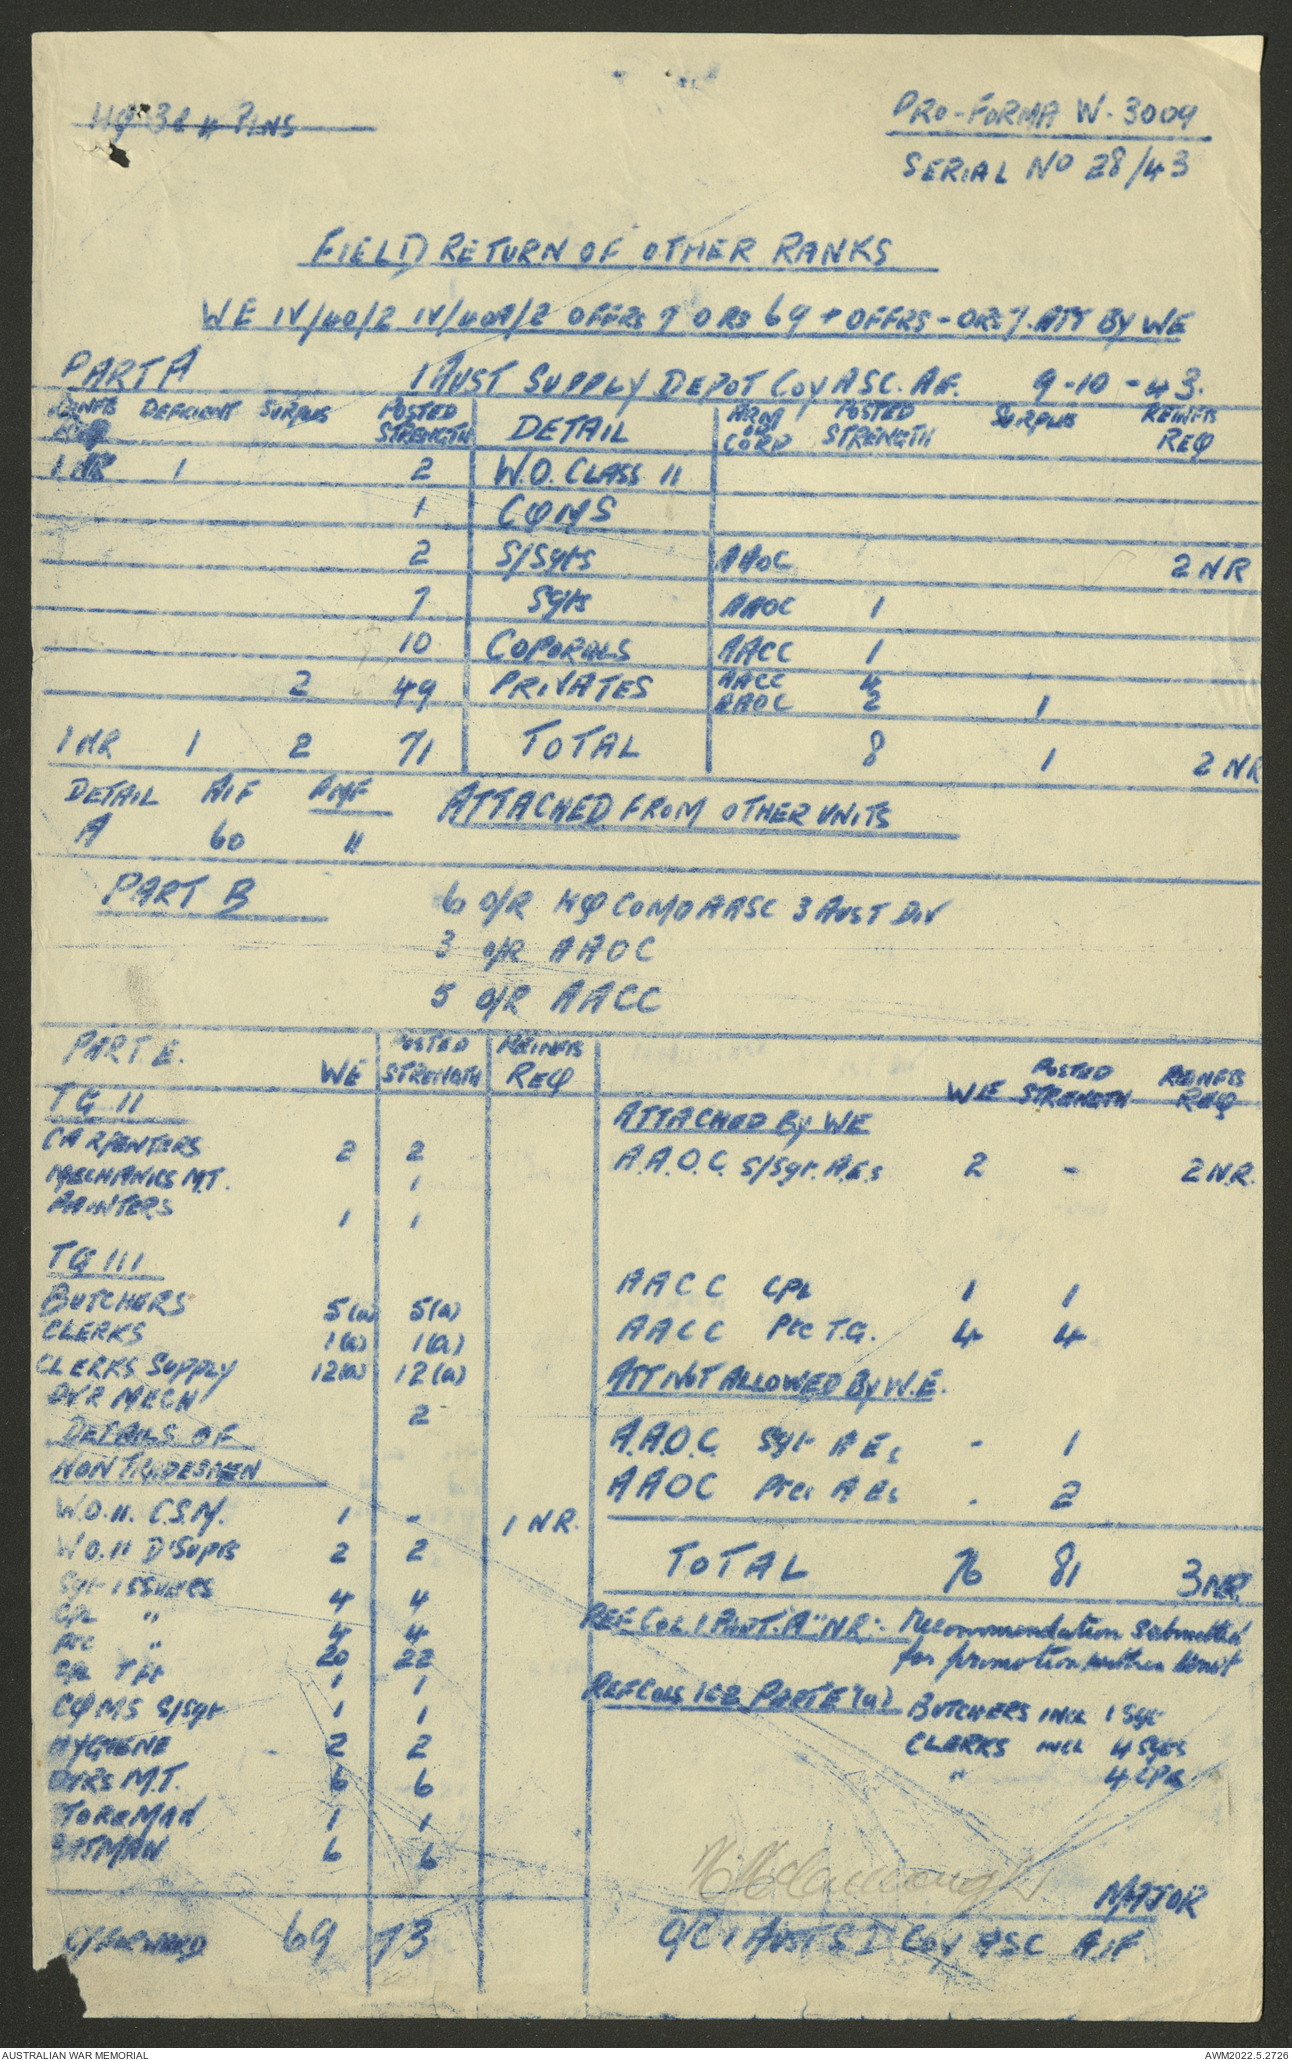 PRO-FORMA W. 3009
SERIAL NO 28/43
FIELD RETURN OF OTHER RANKS
WE IV/40/2 IV/40A/2 OFFRS 7 ORS 69 + OFFRS - ORS 7. ATT BY WE
PART A 1 AUST SUPPLY DEPOT COY ASC. AIF. 9-10-43.
REINFTS REQ DEFICIENT SURPLUS POSTED STRENGTH DETAIL ARM OR CORP POSTED STRENGTH SURPLUS REINFTS REQ
1 NR 1 2 W.O. CLASS II
1 CQMS
2 S/Sgts AAOC 2 NR
7 Sgts AAOC 1
10 COPORALS AACC 1
2 49 PRIVATES AACC 4
AAOC 2 1
1 NR 1 2 71 TOTAL 8 1 2 NR
DETAIL AIF AMF ATTACHED FROM OTHER UNITS
A 60 11
PART B 6 O/R HQ COMD AASC 3 AUST DIV
3 O/R AAOC
5 O/R AACC
PART. E. WE POSTED STRENGTH REINFTS REQ
WE POSTED STRENGTH REINFTS REQ
TG II
CARPENTERS 2 2
MECHANICS M.T. 1
PAINTERS 1 1
TG III
BUTCHERS 5(a) 5(a)
CLERKS 1(a) 1(a)
CLERKS SUPPLY 12(a) 12(a)
DVR MECH 2
DETAILS OF
NON TRADESMEN
W.O.II. C.S.M. 1 - 1 NR.
WO.II D'Supts 2 2
Sgt ISSUERS 4 4
CPL " 4 4
Ptc " 20 22
CPL 1 1
CQMS S/Sgt 1 1
HYGIENE 2 2
DVRS M.T. 6 6
STOREMAN 1 1
BATMAN 6 6
C/FORWARD 69 73
ATTACHED BY WE
A.A.O.C. S/Sgt. A.Es 2 - 2 N.R.
AACC CPL 1 1
AACC Pte T.G. 4 4
ATT NOT ALLOWED BY W.E.
A.A.O.C. Sgt A Es - 1
AAOC Ptes A Es . 2
TOTAL 76 81 3 NR.
REF COL 1 PART. "A" "NR":- Recommendation submitted
for promotion within Unit
REF COLS 1 & 2 PART E "(a)" BUTCHERS INCL 1 Sgt
CLERKS INCL 4 Sgts
" 4 CPLS
MAJOR
O/C 1 AUST S D COY ASC AIF
AUSTRALIAN WAR MEMORIAL AWM2022.5.2726